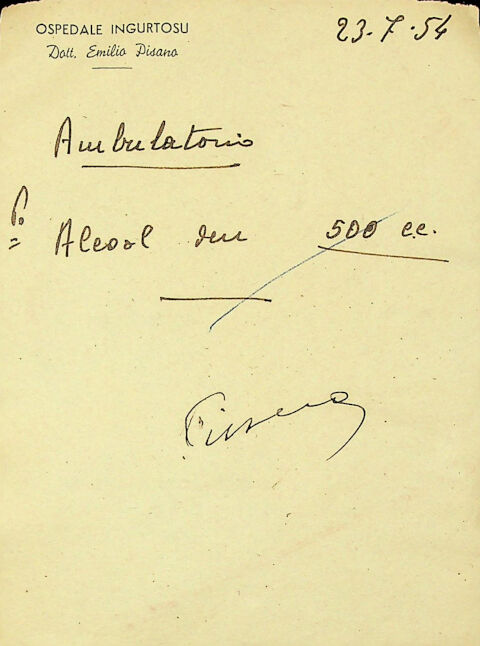 OSPEDALE INGURTOSU
Dott. Emilio Pisano
23·7·54
Ambulatorio
P. Alcool den 500 c.c.
Pisano